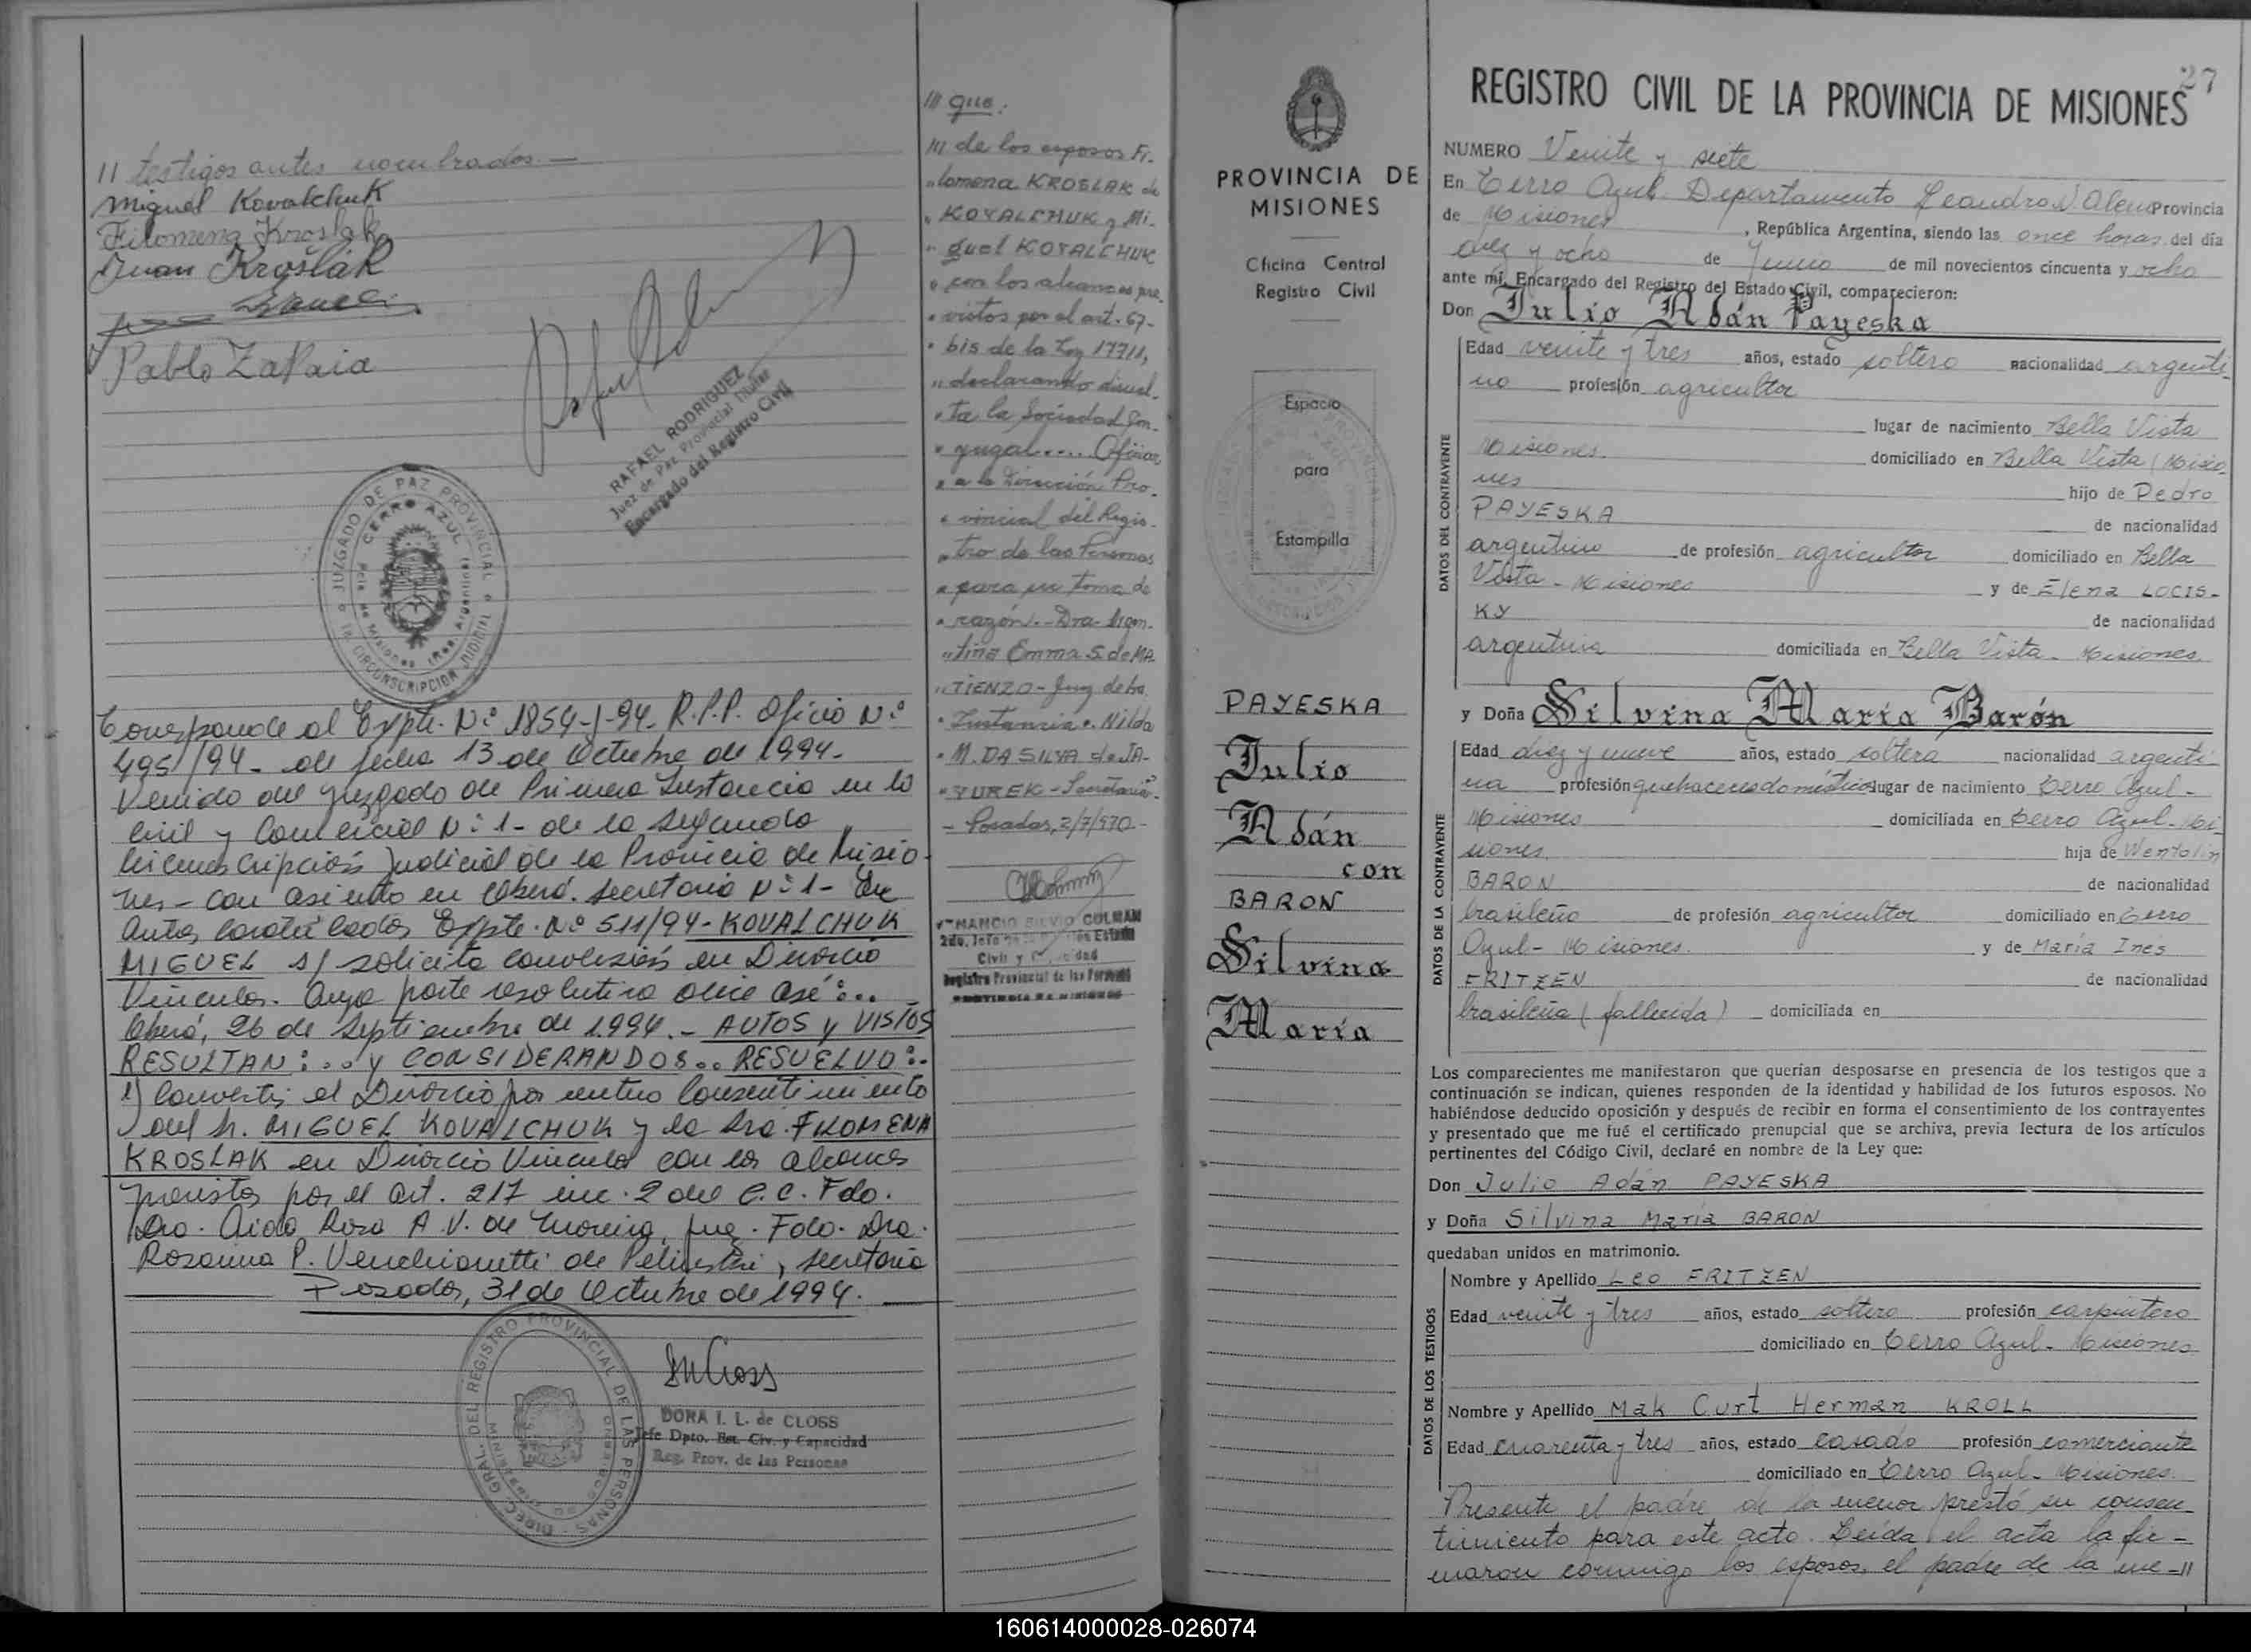 // testigos antes nombrados.—
Miguel Kovalchuk
Filomena Kroslak
Juan Kroslák
Pablo Zapaia
RAFAEL RODRIGUEZ
Juez de Paz Provincial Titular
Encargado del Registro Civil
JUZGADO DE PAZ PROVINCIAL
CERRO AZUL
Pcia. de Misiones (Rep. Argentina)
1a. CIRCUNSCRIPCION JUDICIAL
Corresponde al Expte. Nº 1854-J-94- R.P.P. Oficio Nº
495/94- de fecha 13 de Octubre de 1994-
Venido del Juzgado de Primera Instancia en lo
Civil y Comercial Nº 1- de la Segunda
Circunscripción Judicial de la Provincia de Misio-
nes- con asiento en Oberá. Secretaria Nº 1- En
Autos Caratulados Expte. Nº 511/94- KOVALCHUK
MIGUEL s/ solicita conversión en Divorcio
Vincular. Cuya parte resolutiva dice así:...
Oberá, 26 de Septiembre de 1994.- AUTOS y VISTOS
RESULTAN:... y CONSIDERANDOS... RESUELVO:-
1) Convertir el Divorcio por mutuo Consentimiento
del Sr. MIGUEL KOVALCHUK y la Sra. FILOMENA
KROSLAK en Divorcio Vincular con los alcances
previstos por el art. 217 inc. 2 del C.C. Fdo.
Dra. Aida Rosa A.V. de Moreira, Juez. Fdo. Dra.
Rosanna P. Venchiarutti de , Secretaria
Posadas, 31 de Octubre de 1994.
DIREC. GRAL. DEL REGISTRO PROVINCIAL DE LAS PERSONAS
DORA I. L. de CLOSS
Jefe Dpto. Est. Civ. y Capacidad
Reg. Prov. de las Personas
/// que:
/// de los esposos Fi-
" lomena KROSLAK de
" KOVALCHUK y Mi-
" guel KOVALCHUK
" con los alcances pre-
" vistos por el art. 67-
" bis de la Ley 17711,
" declarando disuel-
" ta la Sociedad Con-
" yugal.... Ofíciese
" a la Dirección Pro-
" vincial del Regis-
" tro de las Personas
" para su toma de
" razón.- Dra. Argen-
" tina Emma S. de MA-
" TIENZO- Juez de 1ra.
" Instancia. Nilda
" M. DA SILVA de JA-
" YUREK- Secretaria".
- Posadas, 2/7/970-
VENANCIO SILVIO COLMAN
Registro Provincial de las Personas
PROVINCIA DE MISIONES
PROVINCIA DE
MISIONES
Oficina Central
Registro Civil
Espacio
para
Estampilla
PAYESKA
Julio
Adán
con
BARON
Silvina
María
27
REGISTRO CIVIL DE LA PROVINCIA DE MISIONES
NUMERO Veinte y siete
En Cerro Azul. Departamento Leandro N. Alem Provincia
de Misiones, República Argentina, siendo las once horas del día
diez y ocho de Junio de mil novecientos cincuenta y ocho
ante mí, Encargado del Registro del Estado Civil, comparecieron:
Don Julio Adán Payeska
DATOS DEL CONTRAYENTE
Edad veinte y tres años, estado soltero nacionalidad argenti-
no profesión agricultor
lugar de nacimiento Bella Vista
Misiones. domiciliado en Bella Vista (Misio-
nes hijo de Pedro
PAYESKA de nacionalidad
argentino de profesión agricultor domiciliado en Bella
Vista - Misiones y de Elena LOCIS-
KY de nacionalidad
argentina domiciliada en Bella Vista - Misiones.
y Doña Silvina María Barón
DATOS DE LA CONTRAYENTE
Edad diez y nueve años, estado soltera nacionalidad argenti-
na profesión quehaceres domésticos lugar de nacimiento Cerro Azul -
Misiones domiciliada en Cerro Azul - Mi-
siones. hija de Wentolin
BARON de nacionalidad
brasileño de profesión agricultor domiciliado en Cerro
Azul - Misiones. y de María Inés
FRITZEN de nacionalidad
brasileña (fallecida) domiciliada en
Los comparecientes me manifestaron que querían desposarse en presencia de los testigos que a
continuación se indican, quienes responden de la identidad y habilidad de los futuros esposos. No
habiéndose deducido oposición y después de recibir en forma el consentimiento de los contrayentes
y presentado que me fué el certificado prenupcial que se archiva, previa lectura de los artículos
pertinentes del Código Civil, declaré en nombre de la Ley que:
Don Julio Adán PAYESKA
y Doña Silvina María BARON
quedaban unidos en matrimonio.
DATOS DE LOS TESTIGOS
Nombre y Apellido Leo FRITZEN
Edad veinte y tres años, estado soltero profesión carpintero
domiciliado en Cerro Azul - Misiones
Nombre y Apellido Mak Curt Herman KROLL
Edad cuarenta y tres años, estado casado profesión comerciante
domiciliado en Cerro Azul - Misiones.
Presente el padre de la menor prestó su consen-
timiento para este acto. Leída el acta la fir-
maron conmigo los esposos, el padre de la me-//
160614000028-026074